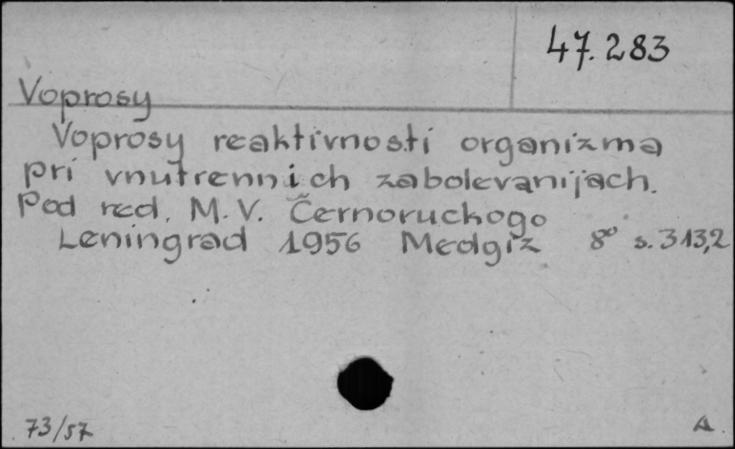 47.283
Voprosy
Voprosy reaktivnosti organizma
pri vnutrennich zabolevanijach.
Pod red. M. V. Černoruckogo
Leningrad 1956 Medgiz 8° s. 313,2
73/57
A